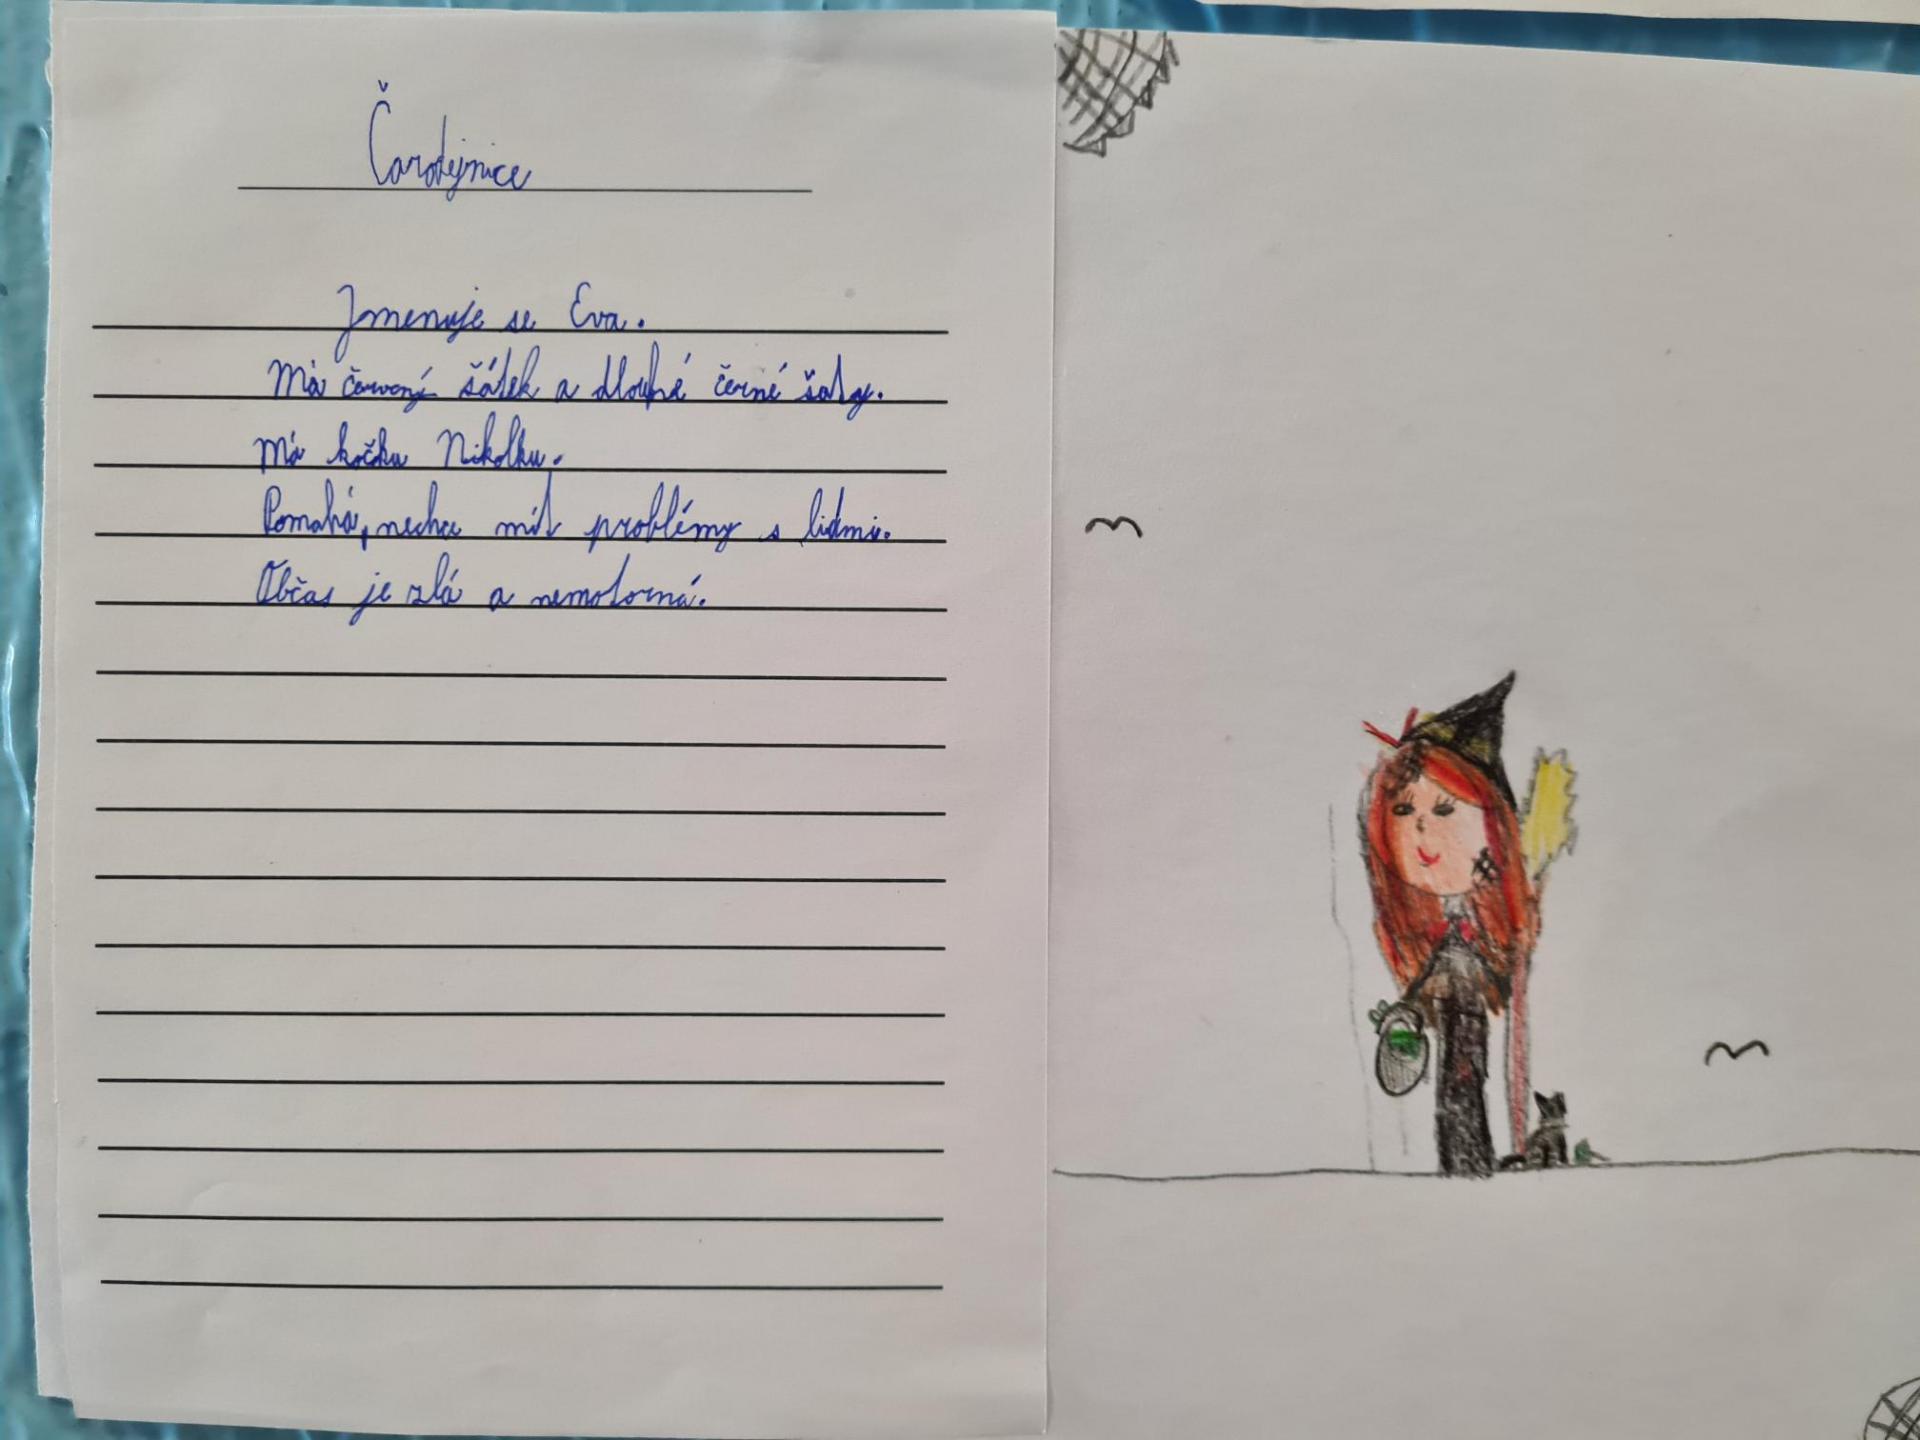 Čarodejnice
Jmenuje se Eva.
Má červený šátek a dlouhé černé šaty.
Má kočku Nikolku.
Pomahá, nechce mít problémy s lidmi.
Občas je zlá a nemotorná.